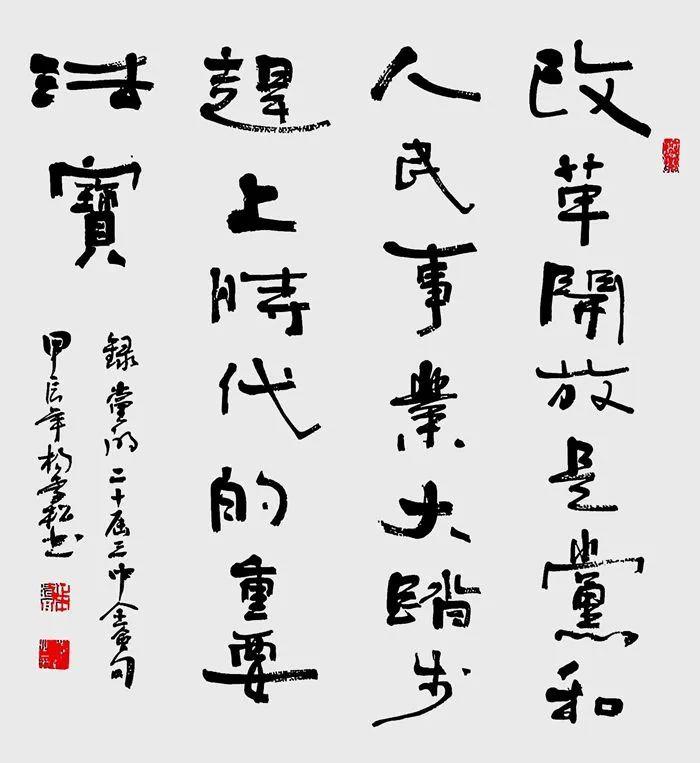 改革開放是黨和
人民事業大踏步
趕上時代的重要
法寶
録黨的二十屆三中全會句
甲辰年楊松書